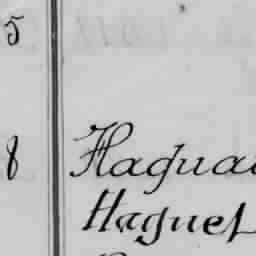 5
8 Haguai
Haguet